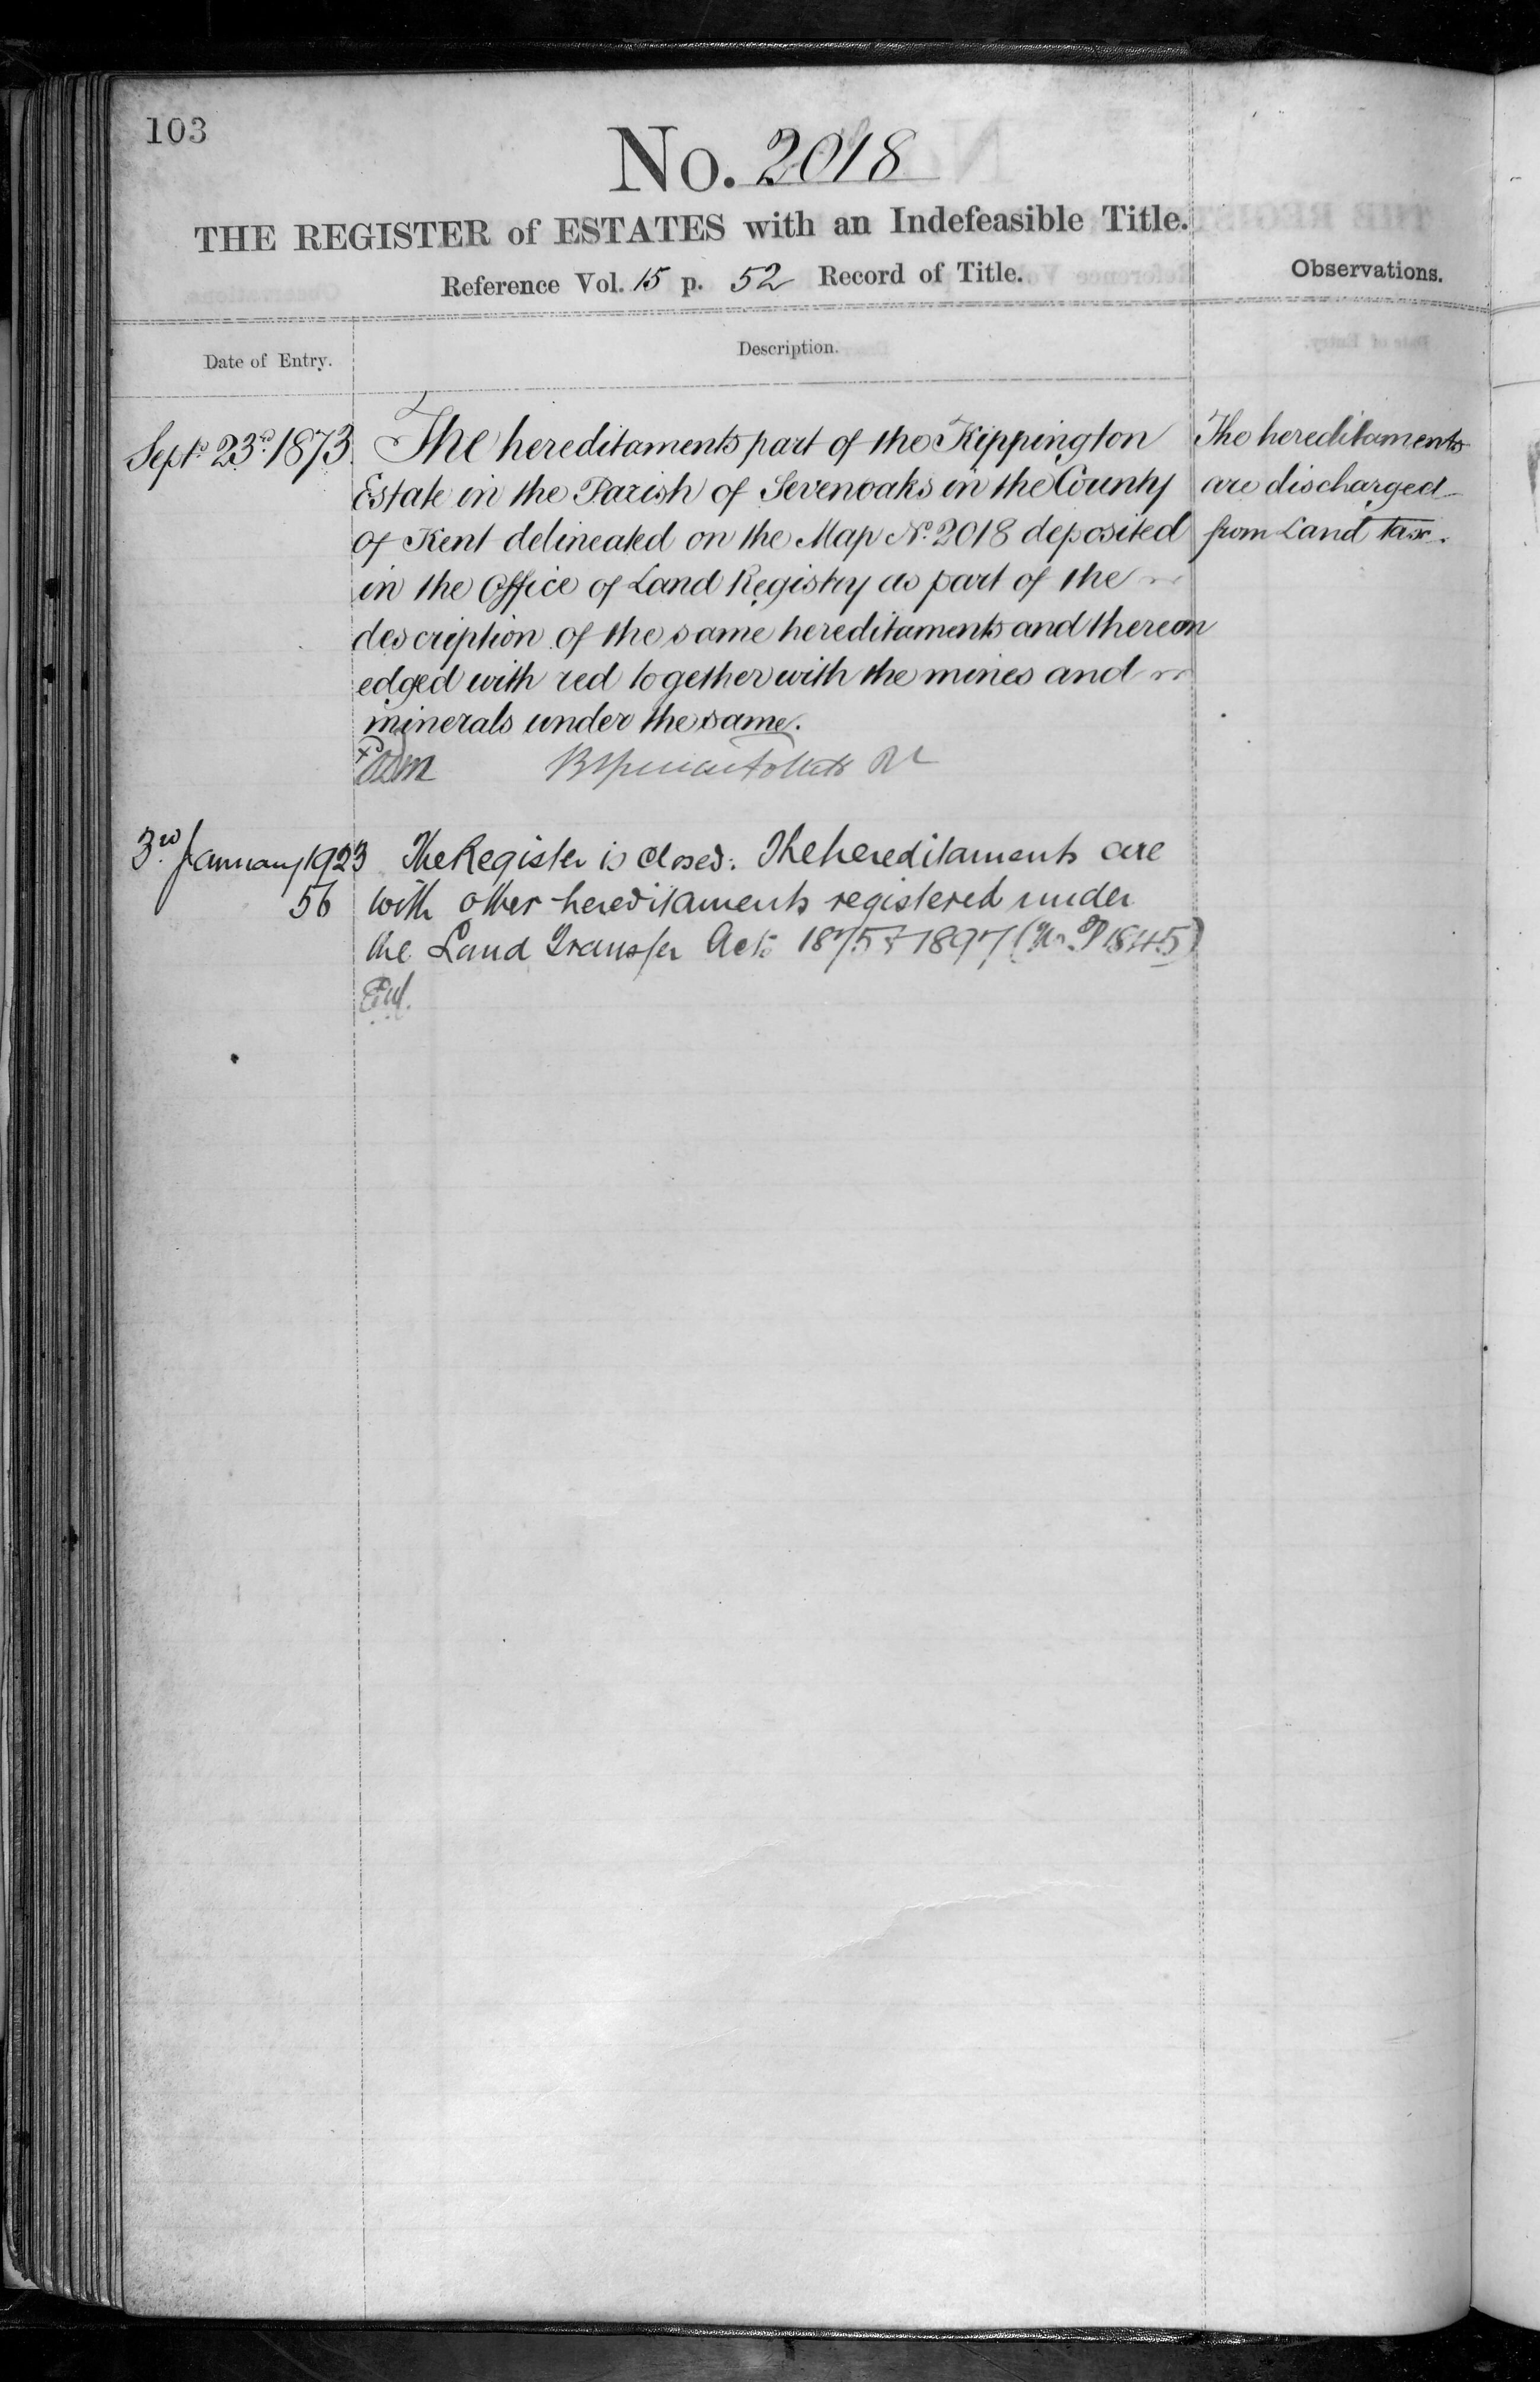 103
No. 2018
THE REGISTER of ESTATES with an Indefeasible Title.
Reference Vol. 15 p. 52 Record of Title.
Observations.
Date of Entry.
Description.
Septr. 23rd 1873.
The hereditaments part of the Kippington
Estate in the Parish of Sevenoaks in the County
of Kent delineated on the Map No. 2018 deposited
in the Office of Land Registry as part of the
description of the same hereditaments and thereon
edged with red together with the mines and
minerals under the same.
The hereditaments
are discharged
from Land tax.
3rd January 1923
56
The Register is closed. The hereditaments are
with other hereditaments registered under
the Land Transfer Acts 1875 & 1897 (No. P 1845)